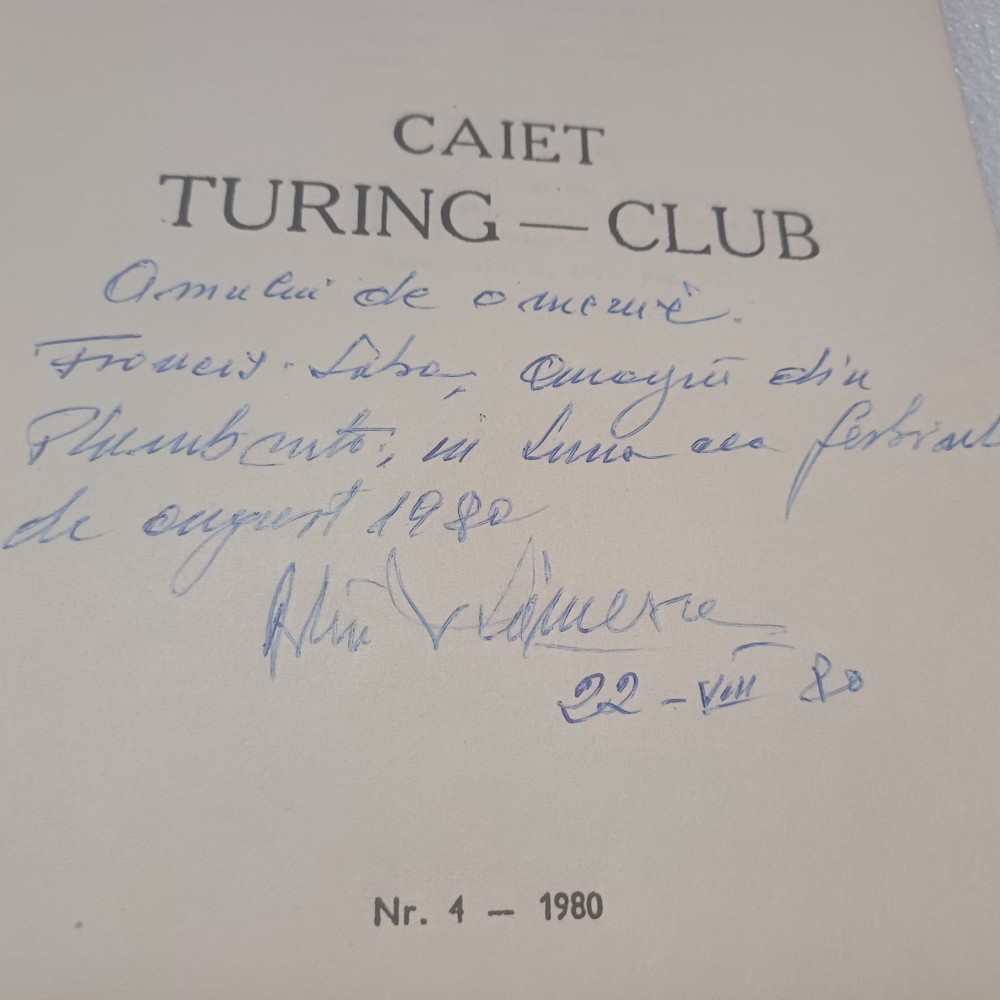 CAIET
TURING — CLUB
Omului de omenie
Francis - omagiu din
Plumbuita, în luna cea
de august 1980
22 - VIII 80
Nr. 4 — 1980